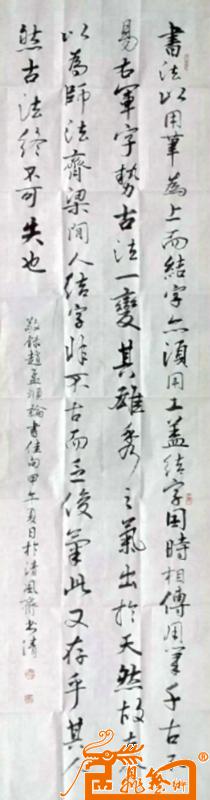 書法以用筆為上而結字亦須用工蓋結字因時相傳用筆千古不
易右軍字勢古法一變其雄秀之氣出於天然故古今
以為師法齊梁間人結字非不古而乏俊氣此又存乎其人
然古法終不可失也
敬錄趙孟頫論書佳句甲午夏日於清風齋